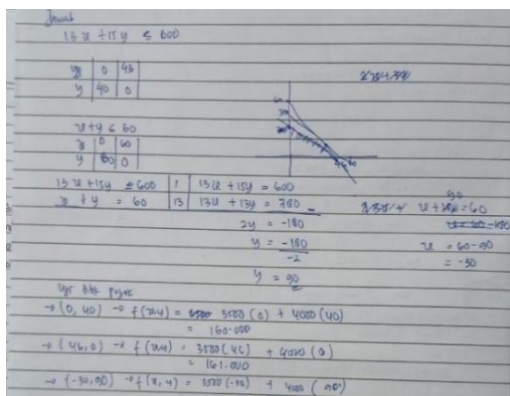 Jawab
13x + 15y ≤ 600
x 0 46
y 40 0
x + y ≤ 60
x 0 60
y 60 0
13x + 15y = 600 | 1 | 13x + 15y = 600
x + y = 60 | 13 | 13x + 13y = 780 _
2y = -180
y = -180
-2
y = 90
x + = 60
x = 60 - 90
= -30
→ (0, 40) → f(x,y) = 3500 (0) + 4000 (40)
= 160.000
→ (46,0) → f(x,y) = 3500 (46) + 4000 (0)
= 161.000
→ (-30,90) → f(x,y) = 3500 (-30) + 4000 (90)